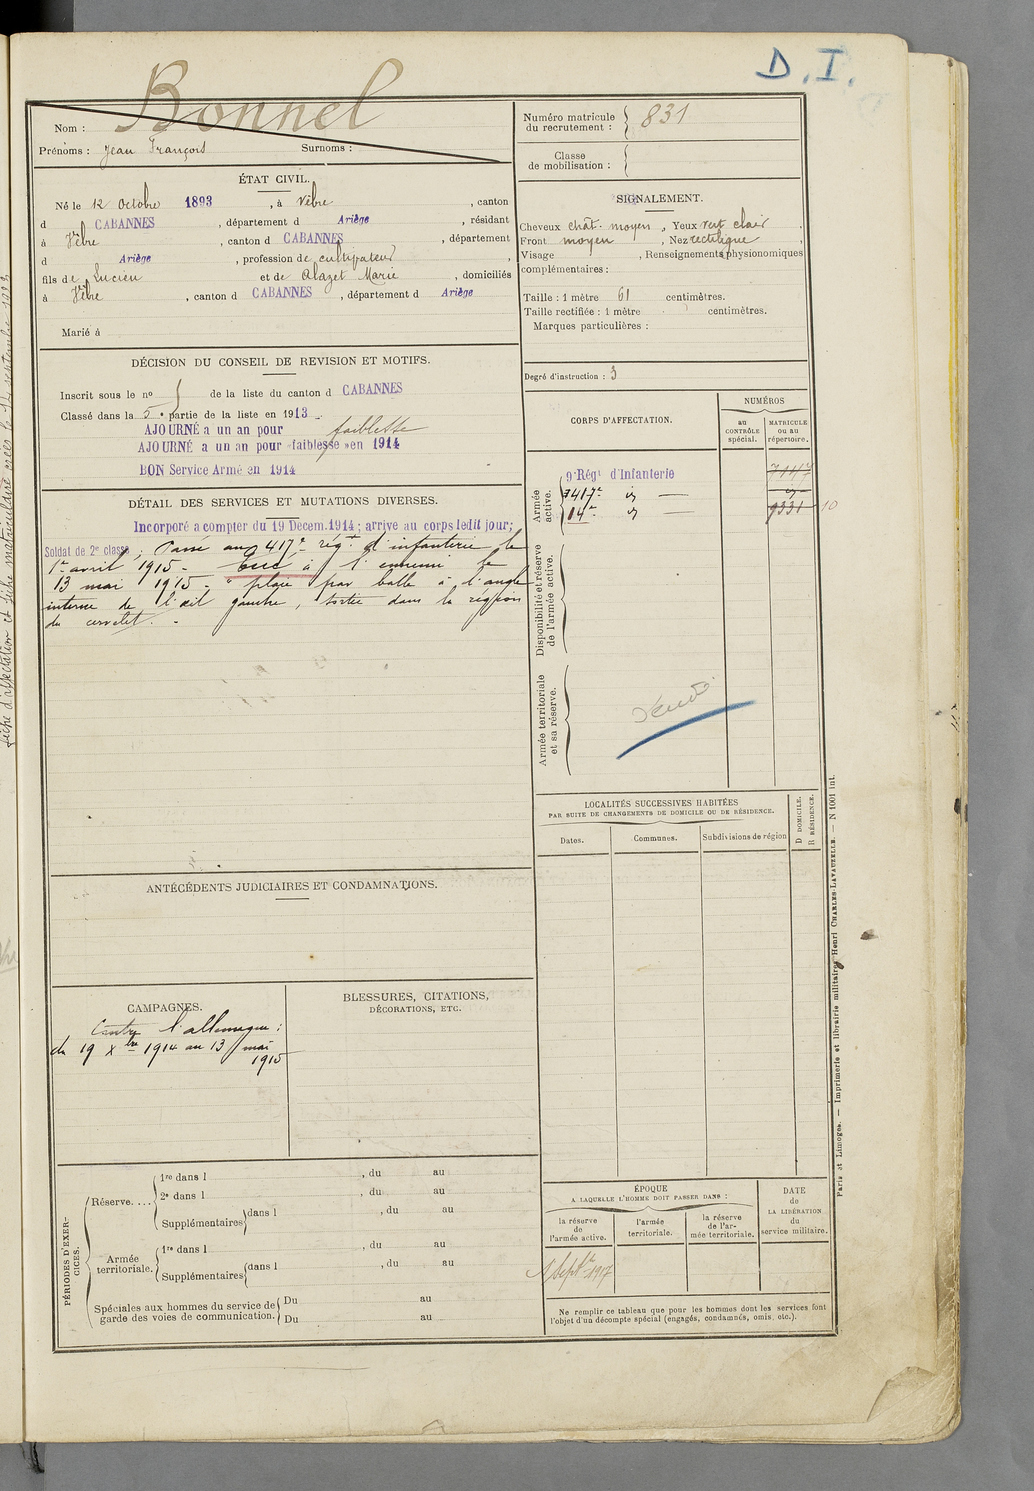 D. I.
Nom : Bonnel
Prénoms : Jean François Surnoms :
Numéro matricule du recrutement : 831
Classe de mobilisation :
ÉTAT CIVIL.
Né le 12 Octobre 1893, à Vèbre, canton
d CABANNES, département d Ariège, résidant
à Vèbre, canton d CABANNES, département
d Ariège, profession de cultivateur,
fils de Lucien et de Alazet Marie, domiciliés
à Vèbre, canton d CABANNES, département d Ariège
Marié à
SIGNALEMENT.
Cheveux chât. moyen, Yeux vert clair,
Front moyen, Nez rectiligne,
Visage , Renseignements physionomiques
complémentaires :
Taille : 1 mètre 61 centimètres.
Taille rectifiée : 1 mètre centimètres.
Marques particulières :
Degré d'instruction : 3
DÉCISION DU CONSEIL DE REVISION ET MOTIFS.
Inscrit sous le no 5 de la liste du canton d CABANNES
Classé dans la 5e partie de la liste en 1913.
AJOURNÉ a un an pour faiblesse
AJOURNÉ a un an pour «faiblesse» en 1914
BON Service Armé en 1914
DÉTAIL DES SERVICES ET MUTATIONS DIVERSES.
Incorporé a compter du 19 Décem. 1914; arrive au corps ledit jour;
Soldat de 2e classe; Passé au 417e régt d'infanterie le
1er avril 1915 - tué à l'ennemi le
13 mai 1915 - "plaie par balle à l'angle
interne de l'œil gauche, sortie dans la région
du cervelet. -
CORPS D'AFFECTATION.
NUMÉROS
au CONTRÔLE spécial.
MATRICULE ou au répertoire.
Armée active.
9e Régt d'Infanterie 7147
417e id —
14e id — 9331 10
Disponibilité et réserve de l'armée active.
Armée territoriale et sa réserve.
LOCALITÉS SUCCESSIVES HABITÉES
PAR SUITE DE CHANGEMENTS DE DOMICILE OU DE RÉSIDENCE.
Dates. Communes. Subdivisions de région D DOMICILE. R RÉSIDENCE.
ANTÉCÉDENTS JUDICIAIRES ET CONDAMNATIONS.
CAMPAGNES.
Contre l'allemagne :
du 19 Xbre 1914 au 13 mai
1915
BLESSURES, CITATIONS,
DÉCORATIONS, ETC.
PÉRIODES D'EXERCICES.
Réserve....
1re dans l , du au
2e dans l , du au
Supplémentaires dans l , du au
Armée territoriale.
1re dans l , du au
Supplémentaires dans l , du au
Spéciales aux hommes du service de
garde des voies de communication.
Du au
Du au
ÉPOQUE
A LAQUELLE L'HOMME DOIT PASSER DANS :
la réserve de l'armée active.
l'armée territoriale.
la réserve de l'armée territoriale.
DATE de LA LIBÉRATION du service militaire.
1 Septbre 1917
Ne remplir ce tableau que pour les hommes dont les services font
l'objet d'un décompte spécial (engagés, condamnés, omis, etc.).
Paris et Limoges. — Imprimerie et librairie militaires Henri CHARLES-LAVAUZELLE. — N 1001 int.